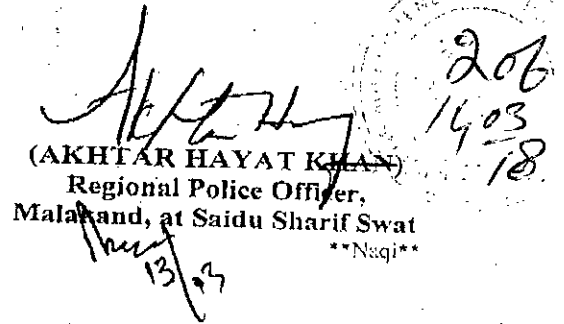 206
14 03
18
(AKHTAR HAYAT KHAN)
Regional Police Officer,
Malakand, at Saidu Sharif Swat
**Naqi**
13/03